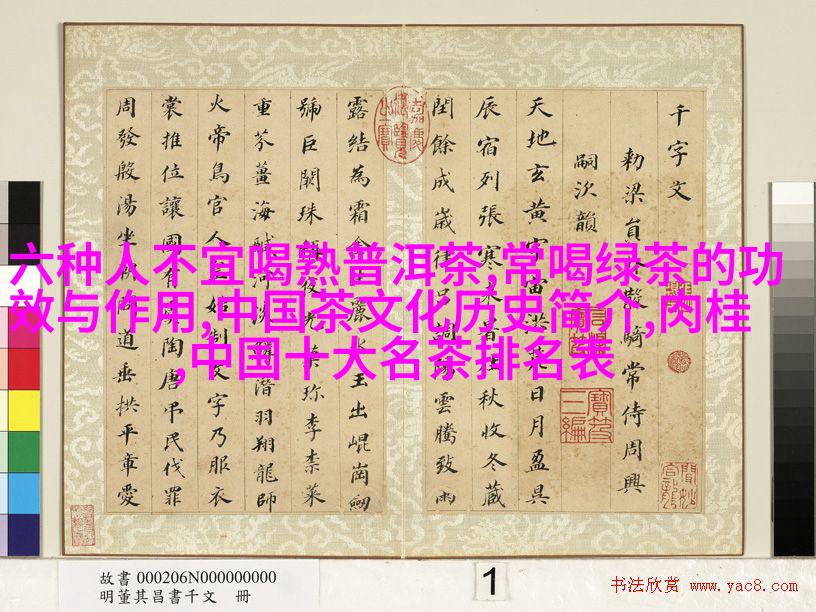 六种人不宜喝熟普洱茶,常喝绿茶的功
效与作用,中国茶文化历史简介,肉桂
,中国十大名茶排名表
千字文
勅梁員外散騎常侍周興
嗣次韻
天地玄黃宇宙洪荒日月盈昃
辰宿列張寒来暑往秋收冬藏
閏餘成歲律呂調陽雲騰致雨
露結為霜金生麗水玉出崐崗劒
號巨闕珠稱夜光菓珍李柰菜
重芥薑海醎河淡鱗潛羽翔龍師
火帝鳥官人皇始制文字乃服衣
裳推位讓國有虞陶唐弔民伐罪
周發殷湯坐朝問道垂拱平章愛
嘉慶御覽之寶
寶笈三編
故書 000206N000000000
明董其昌書千文 冊
1
书法欣赏 www.yac8.com